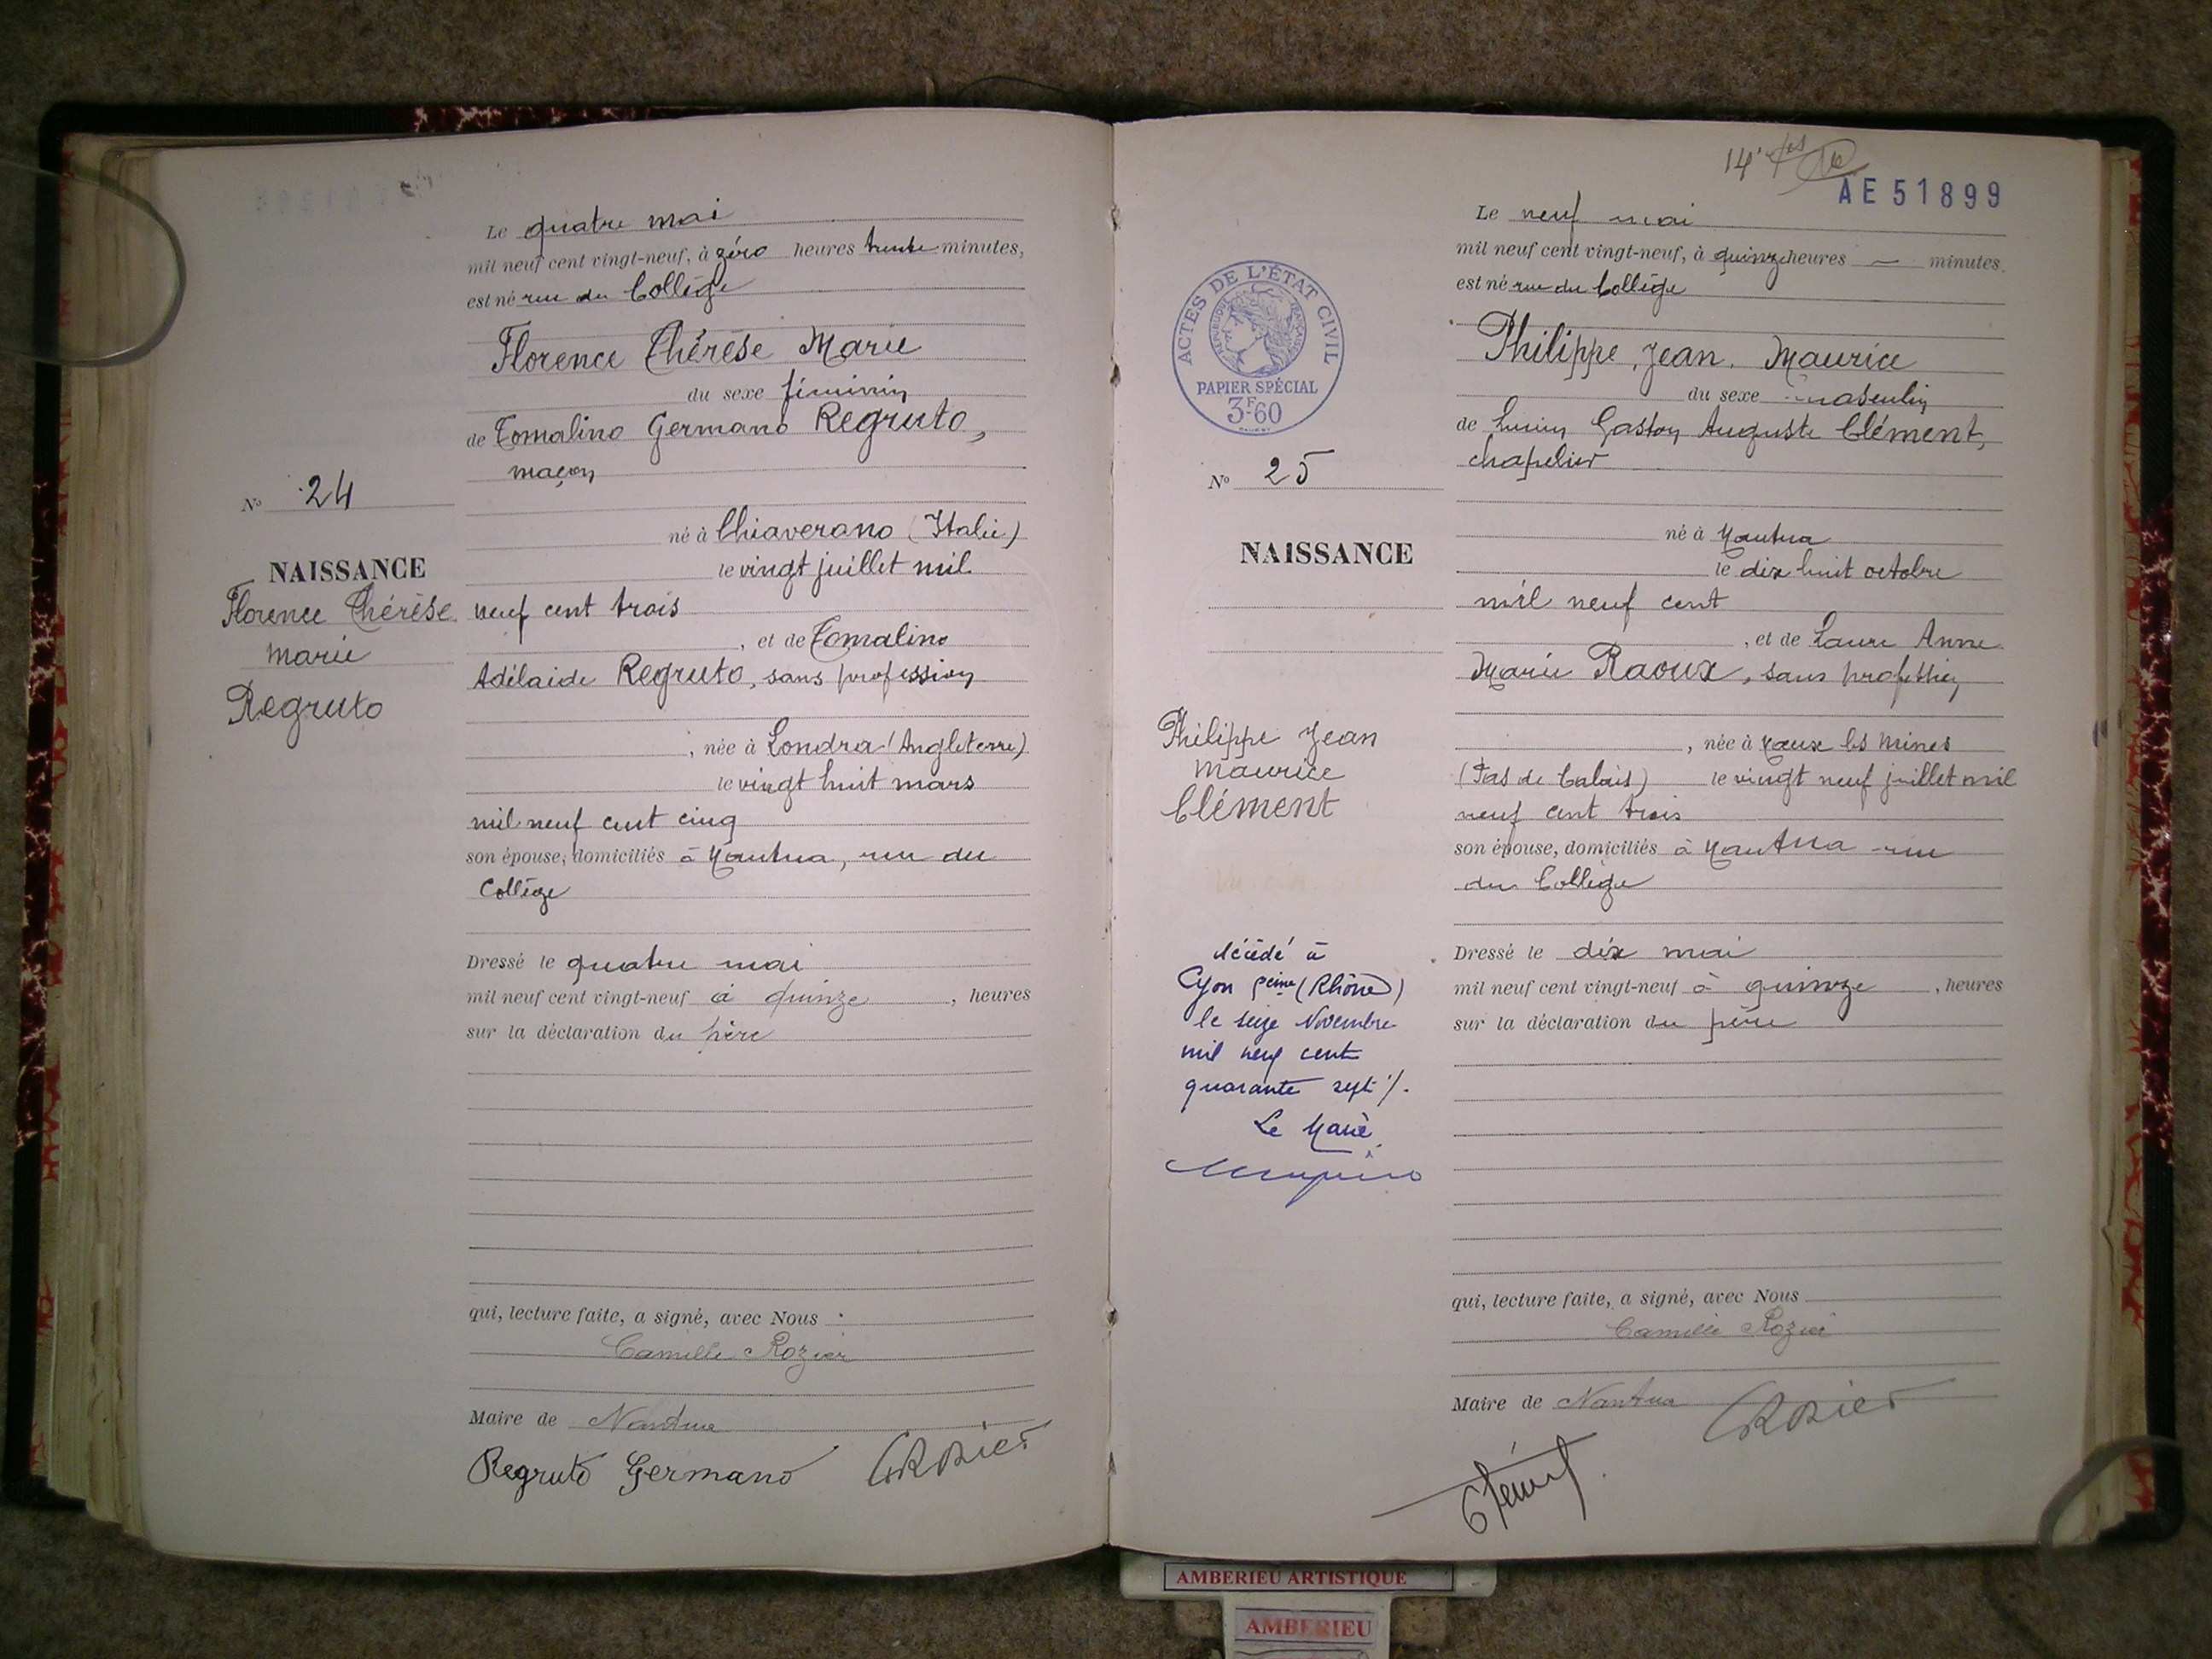 Le quatre mai
mil neuf cent vingt-neuf, à zéro heures trente minutes,
est né rue du Collège
Florence Thérèse Marie
du sexe féminin
de Tomalino Germano Regruto,
maçon
né à Chiaverano (Italie)
le vingt juillet mil
neuf cent trois
, et de Tomalino
Adélaide Regruto, sans profession
, née à Londra (Angleterre)
le vingt huit mars
mil neuf cent cinq
son épouse, domiciliés à Nantua, rue du
Collège
Dressé le quatre mai
mil neuf cent vingt-neuf à quinze, heures
sur la déclaration du père
qui, lecture faite, a signé, avec Nous
Camille Rozier
Maire de Nantua
Regruto Germano CRozier
N° 24
NAISSANCE
Florence Thérèse
Marie
Regruto
14
AE 51899
Le neuf mai
mil neuf cent vingt-neuf, à quinze heures — minutes,
est né rue du Collège
Philippe, Jean, Maurice
du sexe masculin
de Lucien Gaston Auguste Clément,
chapelier
né à Nantua
le dix huit octobre
mil neuf cent
, et de Laure Anne
Marie Raoux, sans profession
, née à Nœux les Mines
(Pas de Calais) le vingt neuf juillet mil
neuf cent trois
son épouse, domiciliés à Nantua rue
du Collège
Dressé le dix mai
mil neuf cent vingt-neuf à quinze, heures
sur la déclaration du père
qui, lecture faite, a signé, avec Nous
Camille Rozier
Maire de Nantua
CRozier
Clément
ACTES DE L'ÉTAT CIVIL
RÉPUBLIQUE FRANÇAISE
PAPIER SPÉCIAL
3F60
N° 25
NAISSANCE
Philippe Jean
Maurice
Clément
décédé à
Lyon 5eme (Rhône)
le seize Novembre
mil neuf cent
quarante sept ./.
Le Maire
AMBERIEU ARTISTIQUE
AMBERIEU